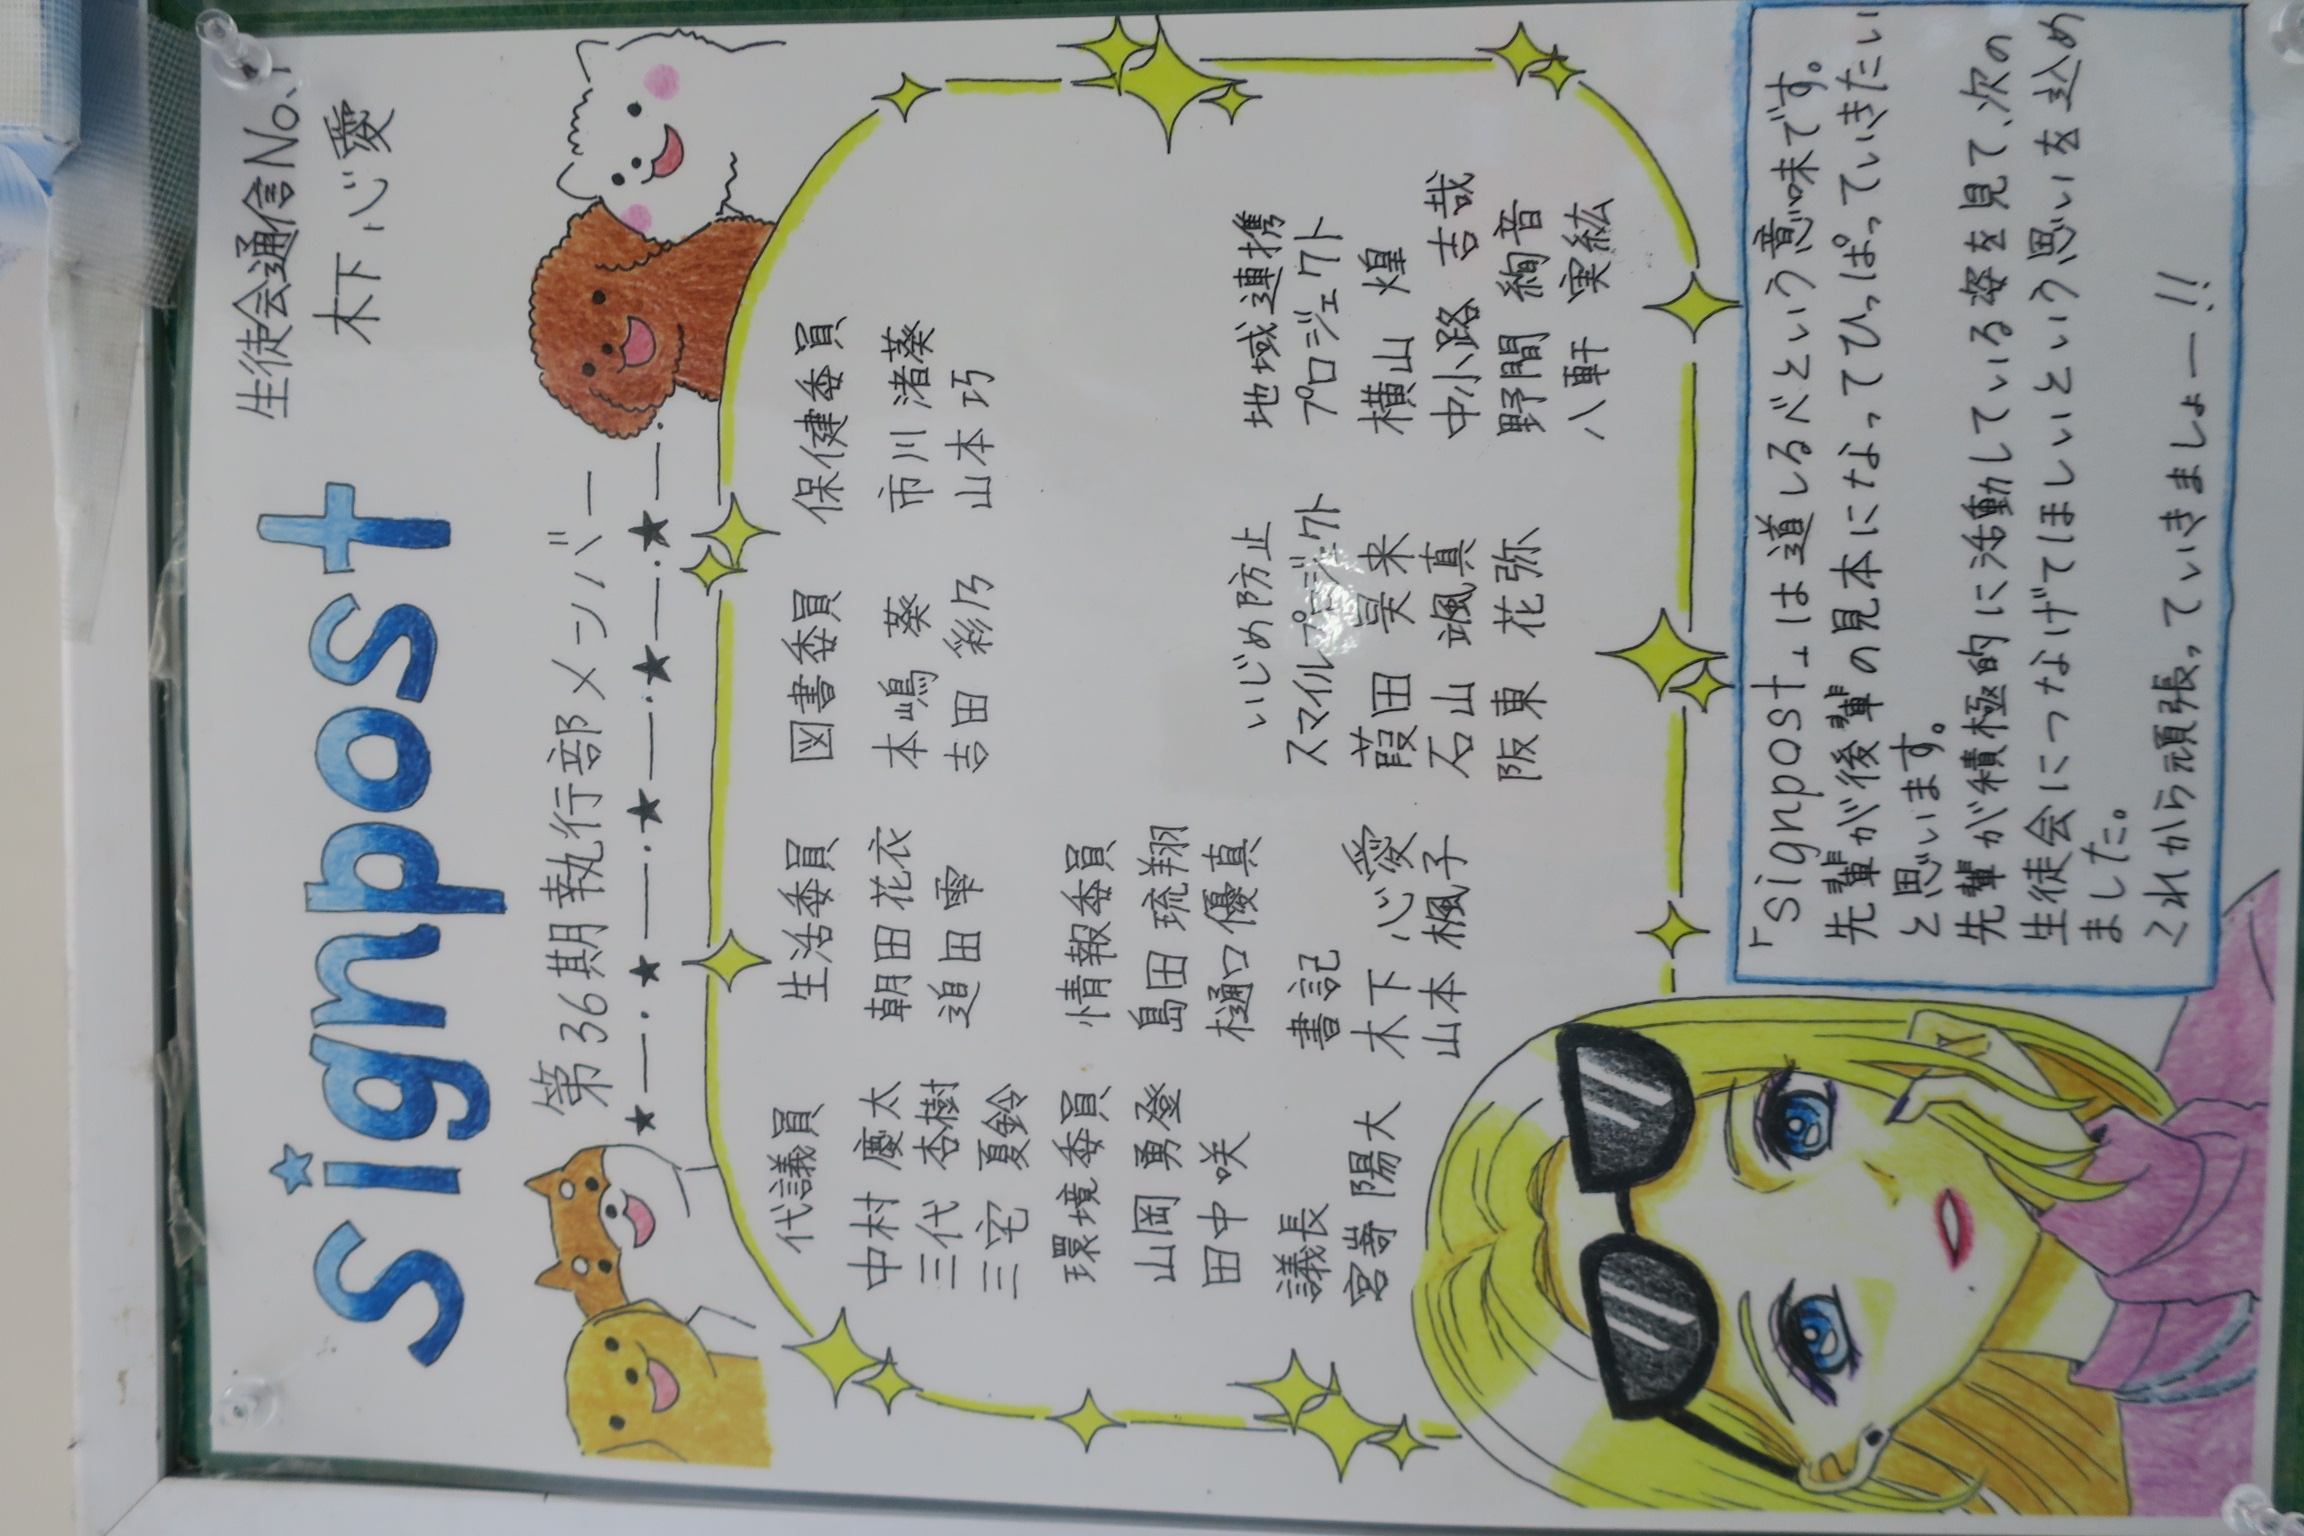 生徒会通信No.1
木下 心愛
signpost
第36期執行部メンバー
代議員
中村 慶太
三代 杏樹
三宅 夏鈴
生活委員
朝田 花衣
迫田 雫
図書委員
本嶋 葵
吉田 彩乃
保健委員
市川 渚葵
山本 巧
環境委員
山岡 勇登
田中 咲
情報委員
島田 琉翔
樋口 優真
議長
宮嵜 陽大
書記
木下 心愛
山本 楓子
いじめ防止
スマイルプロジェクト
葭田 昊来
石山 颯真
阪東 花弥
地域連携
プロジェクト
横山 煌
中小路 吉哉
野間 絢音
八軒 実紘
「signpost」は道しるべという意味です。
先輩が後輩の見本になってひっぱっていきたい
と思います。
先輩が積極的に活動している姿を見て、次の
生徒会につなげてほしいという思いを込め
ました。
これから頑張っていきましょー!!